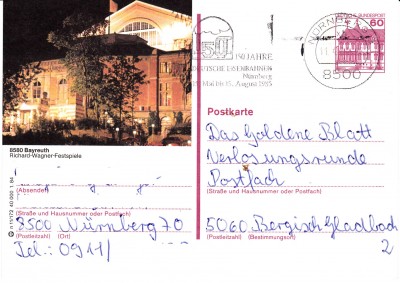 8580 Bayreuth
Richard-Wagner-Festspiele
150 JAHRE
DEUTSCHE EISENBAHNEN
Nürnberg
Mai bis 25. August 1985
NÜRNBERG
8500
DEUTSCHE BUNDESPOST
60
Postkarte
Das Goldene Blatt
Verlosungsrunde
Postfach
(Straße und Hausnummer oder Postfach)
5060 Bergisch Gladbach
2
(Postleitzahl) (Bestimmungsort)
(Absender)
(Straße und Hausnummer oder Postfach)
8500 Nürnberg 70
(Postleitzahl) (Ort)
Tel.: 0911/